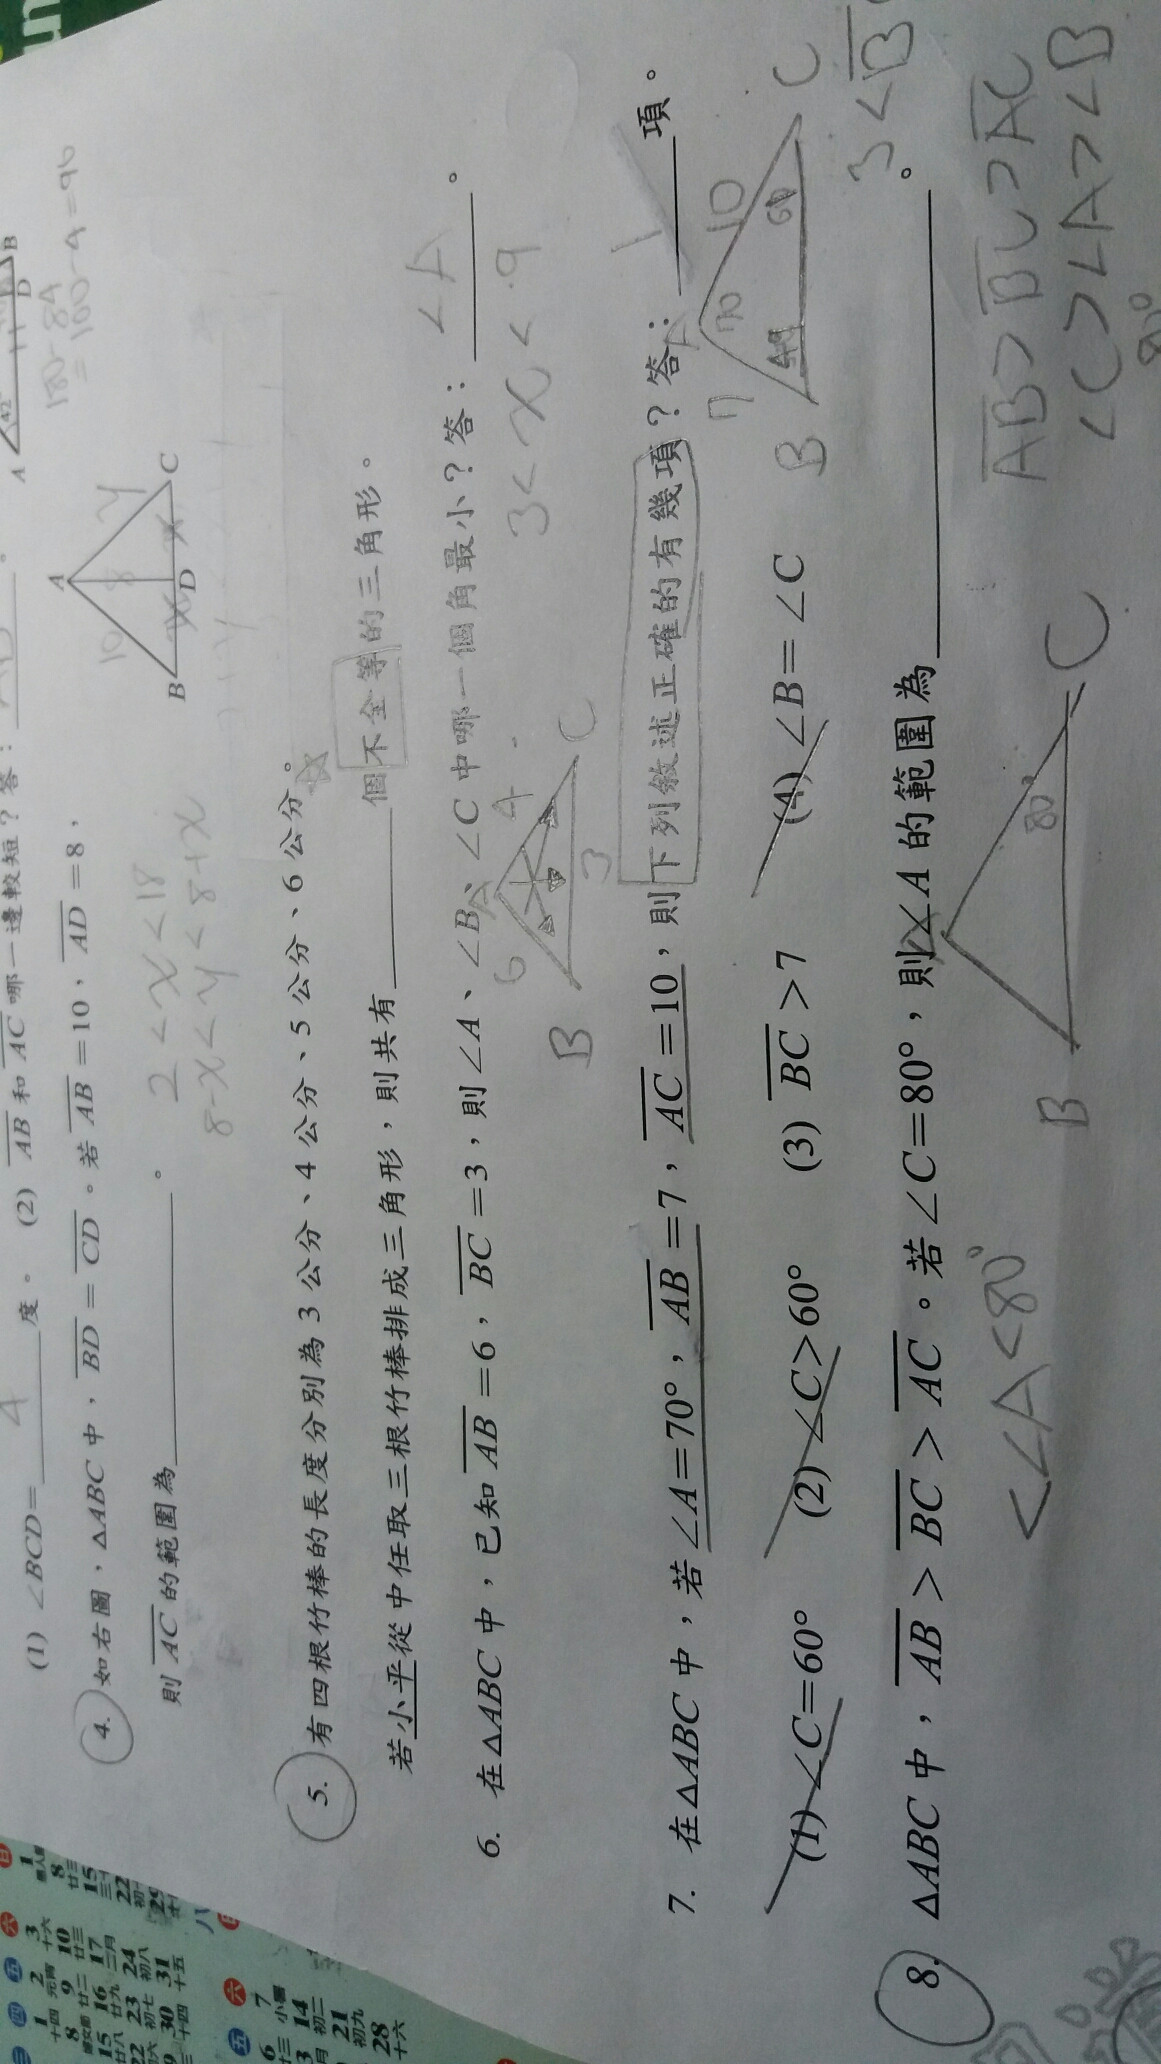 (1) ∠BCD=____4____度。 (2) AB和AC哪一邊較短？答：
A 42° D B
180-84
=100-4=96
4. 如右圖，△ABC中，BD=CD。若AB=10、AD=8，
則AC的範圍為____________。
2<x<18
8-x<y<8+x
A
10 8 y
B x D x C
5. 有四根竹棒的長度分別為3公分、4公分、5公分、6公分。
若小平從中任取三根竹棒排成三角形，則共有________個不全等的三角形。
6. 在△ABC中，已知AB=6，BC=3，則∠A、∠B、∠C中哪一個角最小？答：____∠A____。
3<x<9
A
6 4
B 3 C
7. 在△ABC中，若∠A=70°，AB=7，AC=10，則下列敘述正確的有幾項？答：____1____項。
(1) ∠C=60° (2) ∠C>60° (3) BC>7 (4) ∠B=∠C
A
7 70 10
B 60 C
3<B
8. △ABC中，AB>BC>AC。若∠C=80°，則∠A的範圍為____________。
<∠A<80°
B 80° C
AB>BC>AC
∠C>∠A>∠B
80°